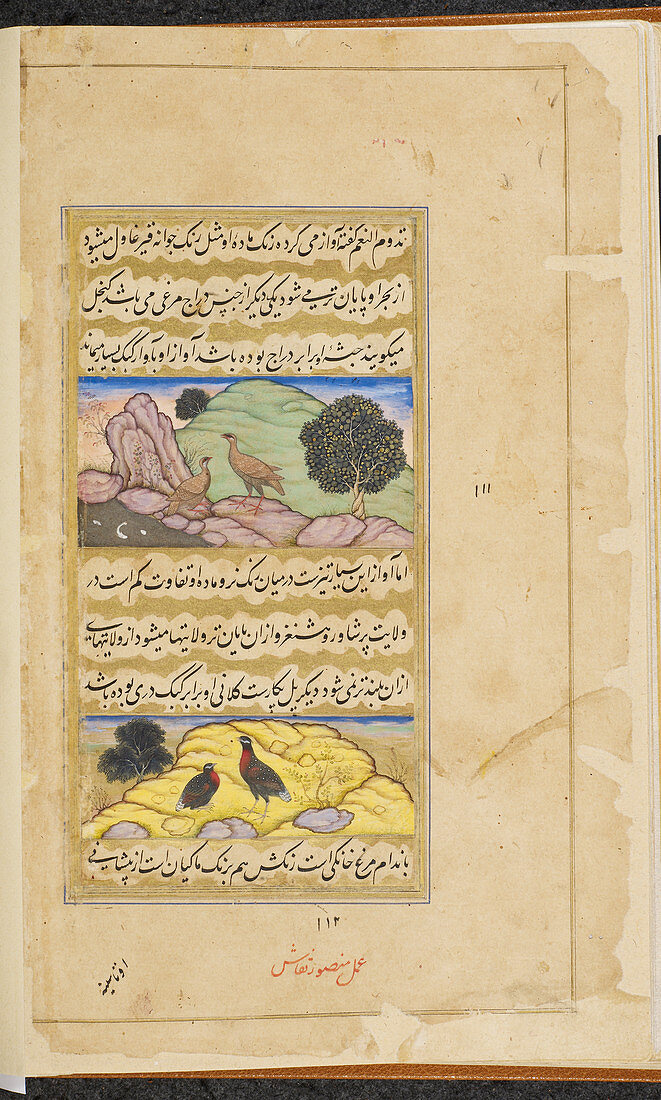 تدوم النعم گفته آواز می کرده رنک ماده او مثل رنک جوانه قیرغاول میشود
از بجر او پایان تر می شود یکی دیگر از جنس دراج مرغی می باشد کنجل
میگویند جثهٔ او برابر دراج بوده باشد آواز او بآواز کبک بسیار میماند
۱۱۱
اما آواز این بسیار تیزست درمیان رنک نر و ماده او تفاوت کم است در
ولایت پرشاور و هشنغر و ازان پایان تر ولایتها میشود از ولایتهای
ازان بلندتر نمی شود دیگر پل پکارست کلانی او برابر کبک دری بوده باشد
باندام مرغ خانگی است رنکش هم برنک ماکیان است از پیشانی
۱۱۲
عمل منصور نقاش